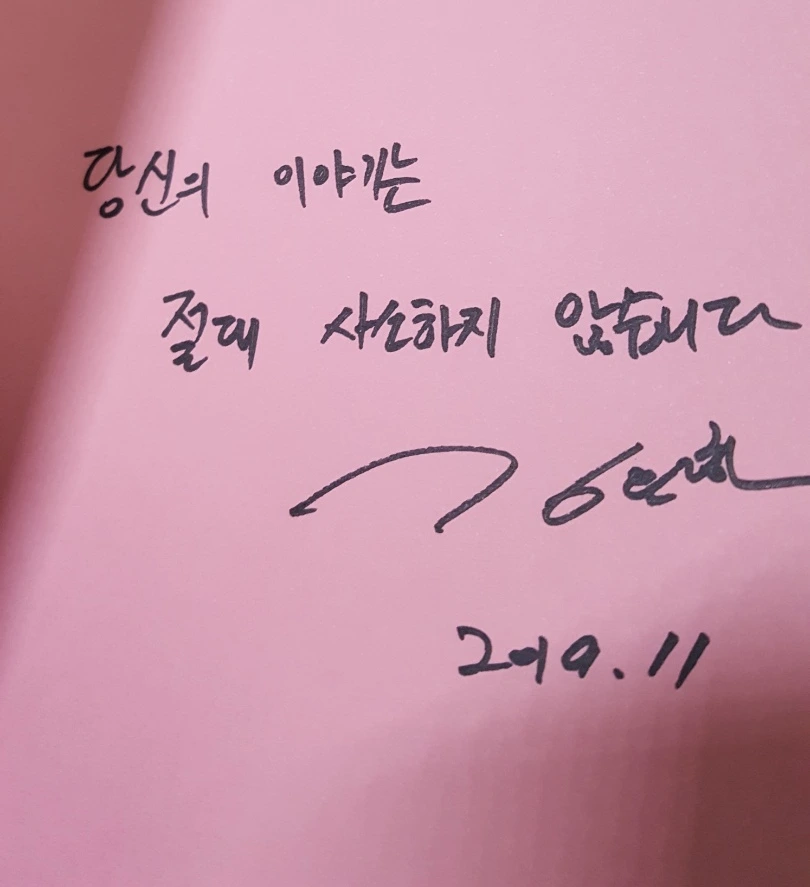 당신의 이야기는
절대 사소하지 않습니다
2019.11